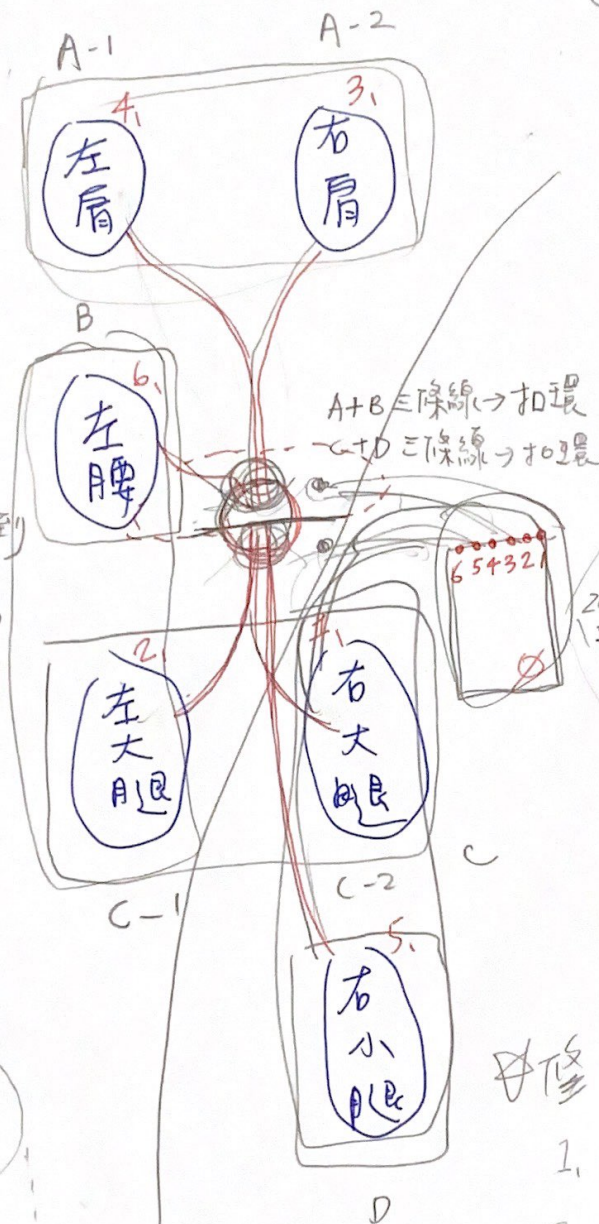 A-1
A-2
4.
3.
左肩
右肩
B
6.
左腰
A+B 三條線→扣環
C+D 三條線→扣環
6 5 4 3 2 1
2.
1.
左大腿
右大腿
C
C-1
C-2
5.
右小腿
修
1.
D